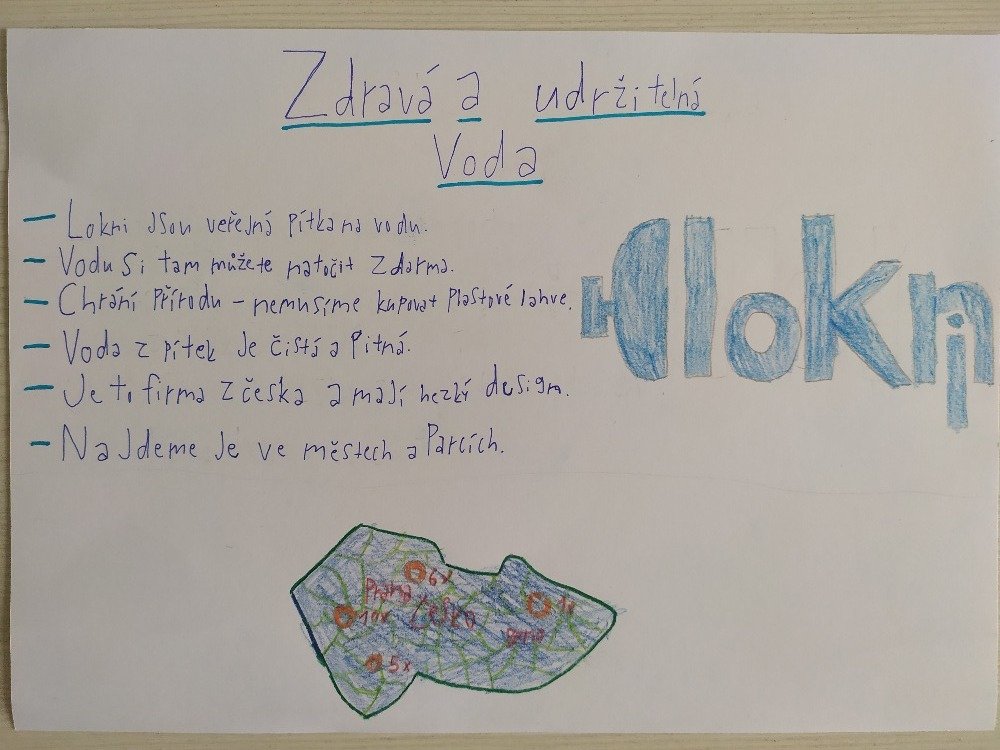 Zdravá a udržitelná
Voda
– Lokni Jsou veřejná Pítka na vodu.
– Vodu Si tam můžete natočit Zdarma.
– Chrání Přírodu – nemusíme kupovat Plastové lahve.
– Voda z pítek Je čistá a Pitná.
– Je to firma z česka a mají hezký design.
– NaJdeme Je ve městech a Parcích.
lokni
6x
Praha
10x
Česko
1x
Brno
5x